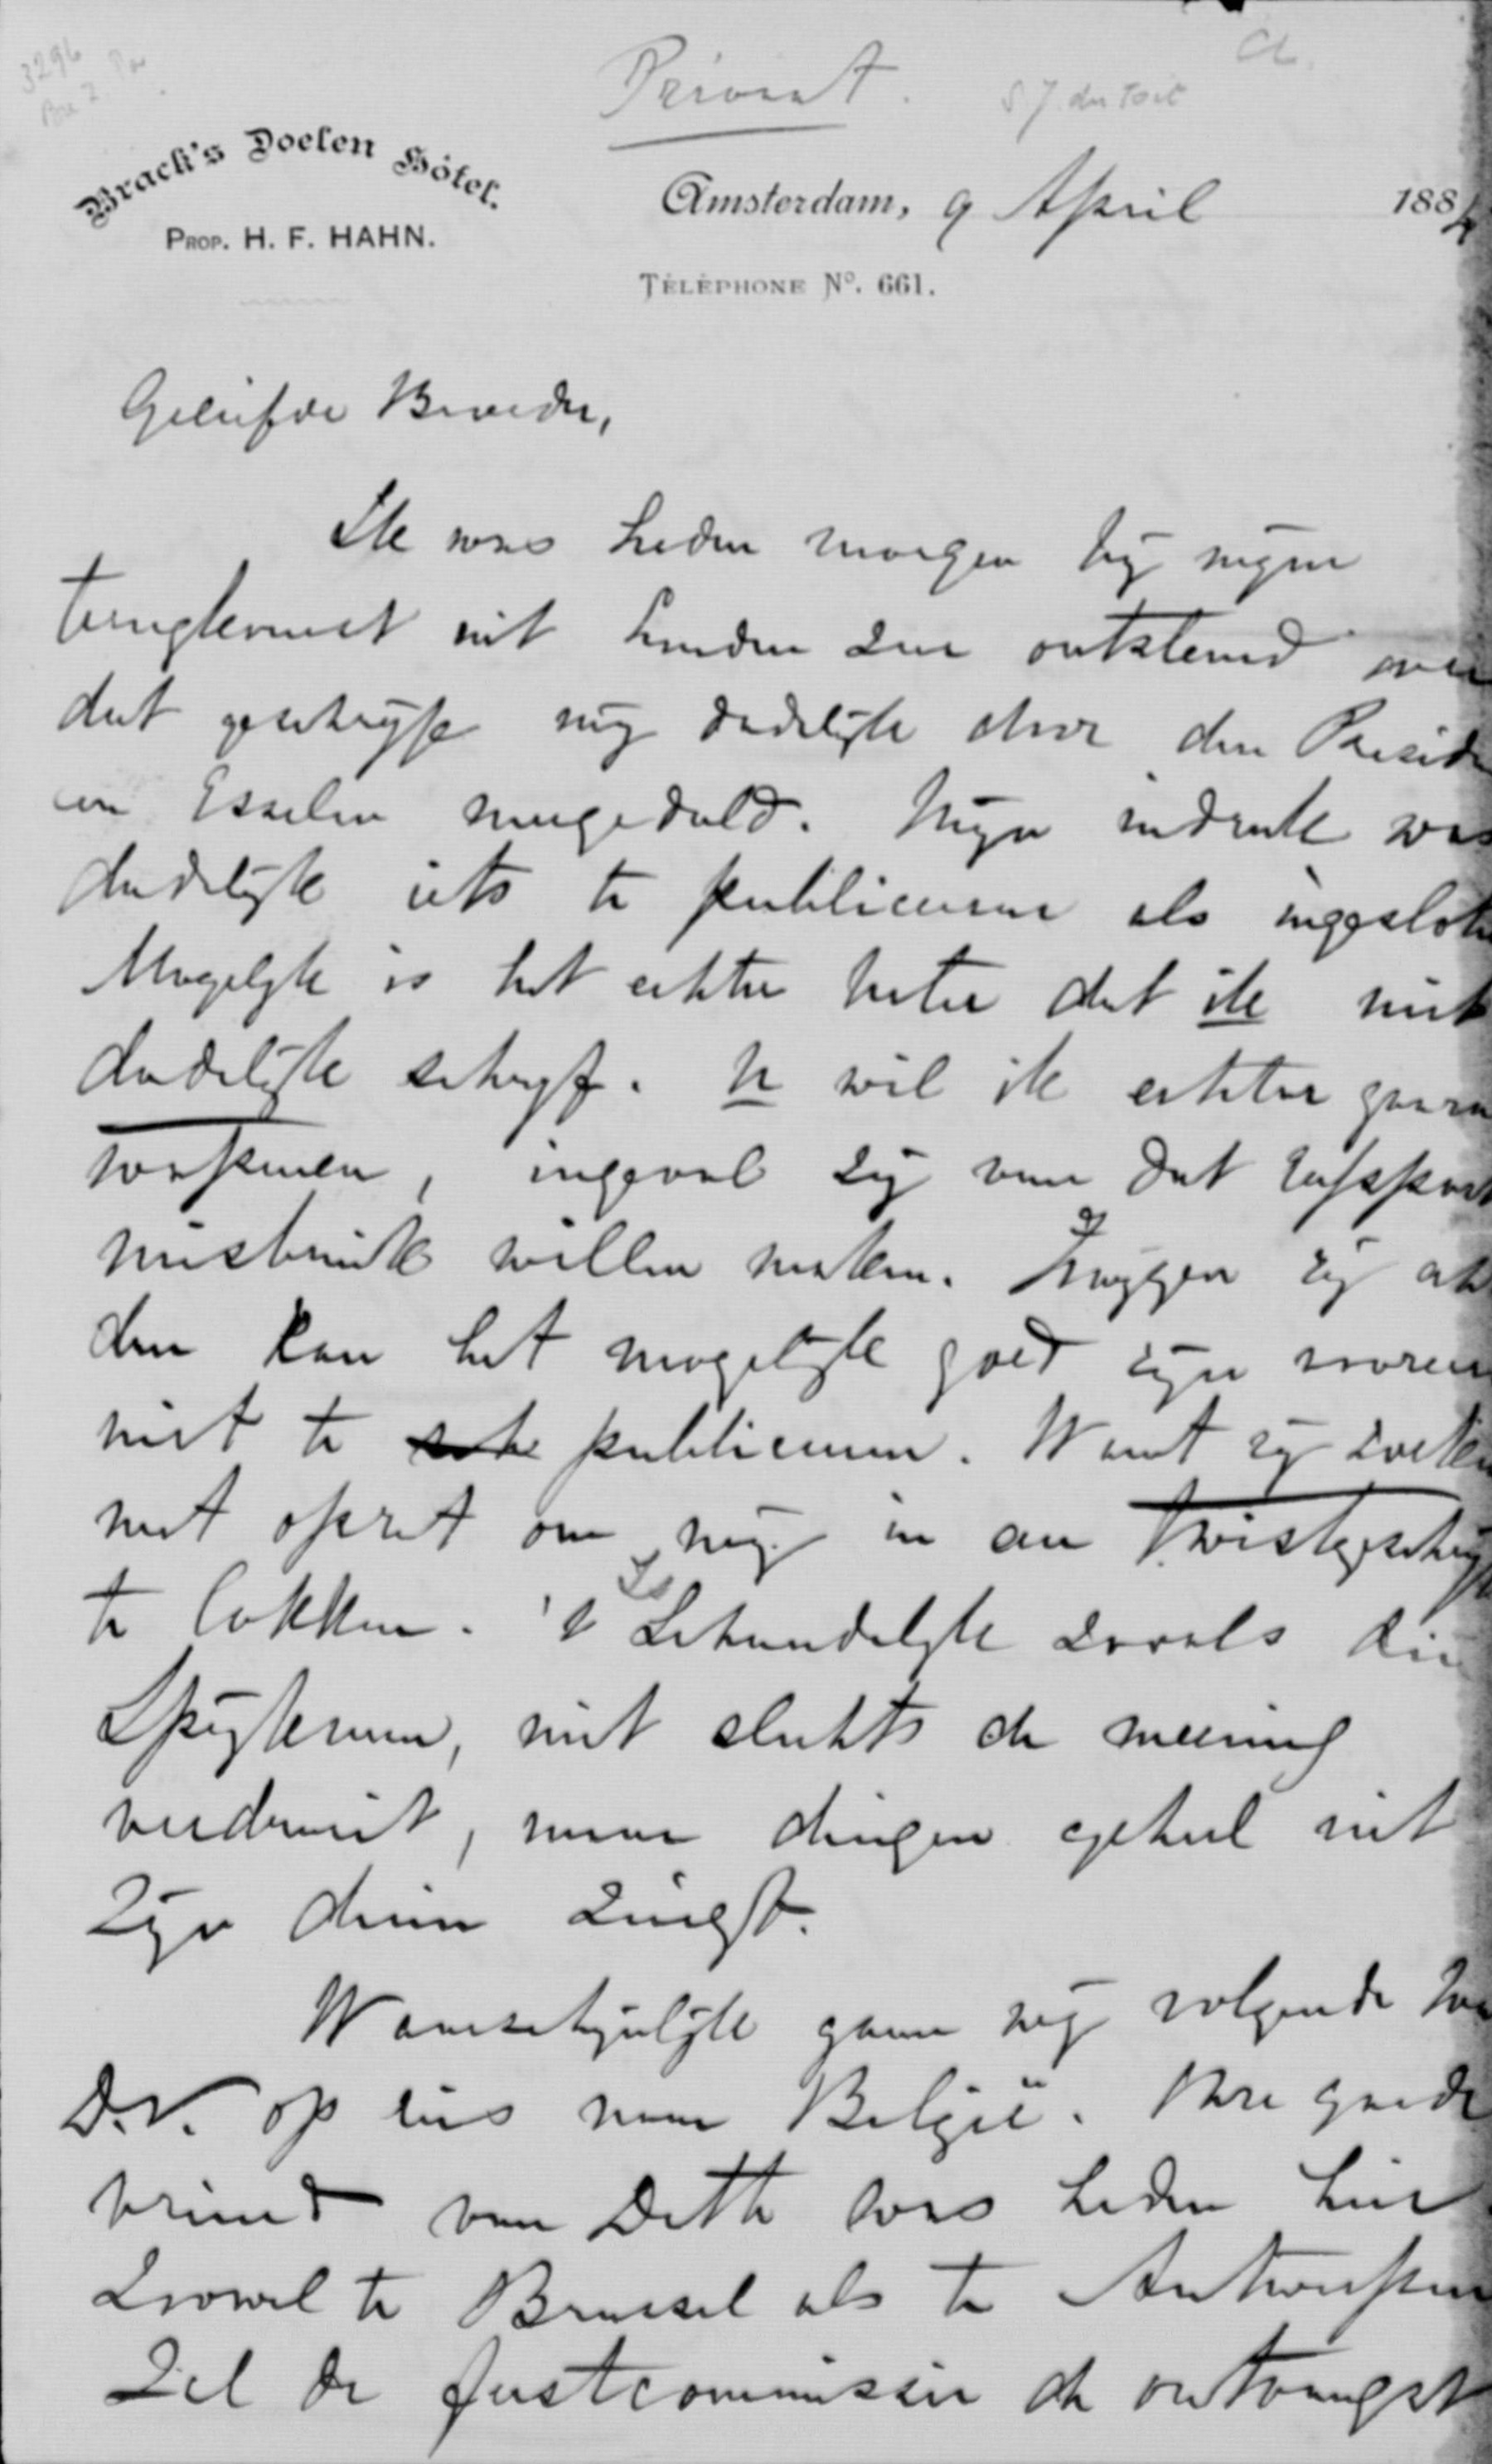 3296
Privaat.
S. J. du Toit
Brack's Doelen Hôtel.
PROP. H. F. HAHN.
Amsterdam, 9 April 1884
TÉLÉPHONE Nº. 661.
Geliefde Broeder,
Ik was heden morgen by myne
terugkomst uit Leiden zeer ontstemd over
dat geschryf my dadelyk door den Preside
en Esselen meegedeeld. Myn indruk was
dadelyk iets te publiceeren als ingeslote
Mogelyk is het echter beter dat ik niet
dadelyk schryf. U wil ik echter gaarn
wapenen, ingeval zy van dat
misbruik willen maken. Zwygen zy
dan kan het mogelyk goed zyn
niet te publiceeren. Want zy zoeken
met opzet om my in een twistgeschryf
te lokken. 't Is schandelyk zooals die
Spyker, niet slechts de meening
verdraait, maar dingen geheel uit
zyn duim zuigt.
Waarschynlyk gaan wy volgende
D.V. op reis naar België. Uwe goede
vriend van Dette was heden hier.
Zoowel te Brussel als te Antwerpen
zal de feestcommissie de ontvangst